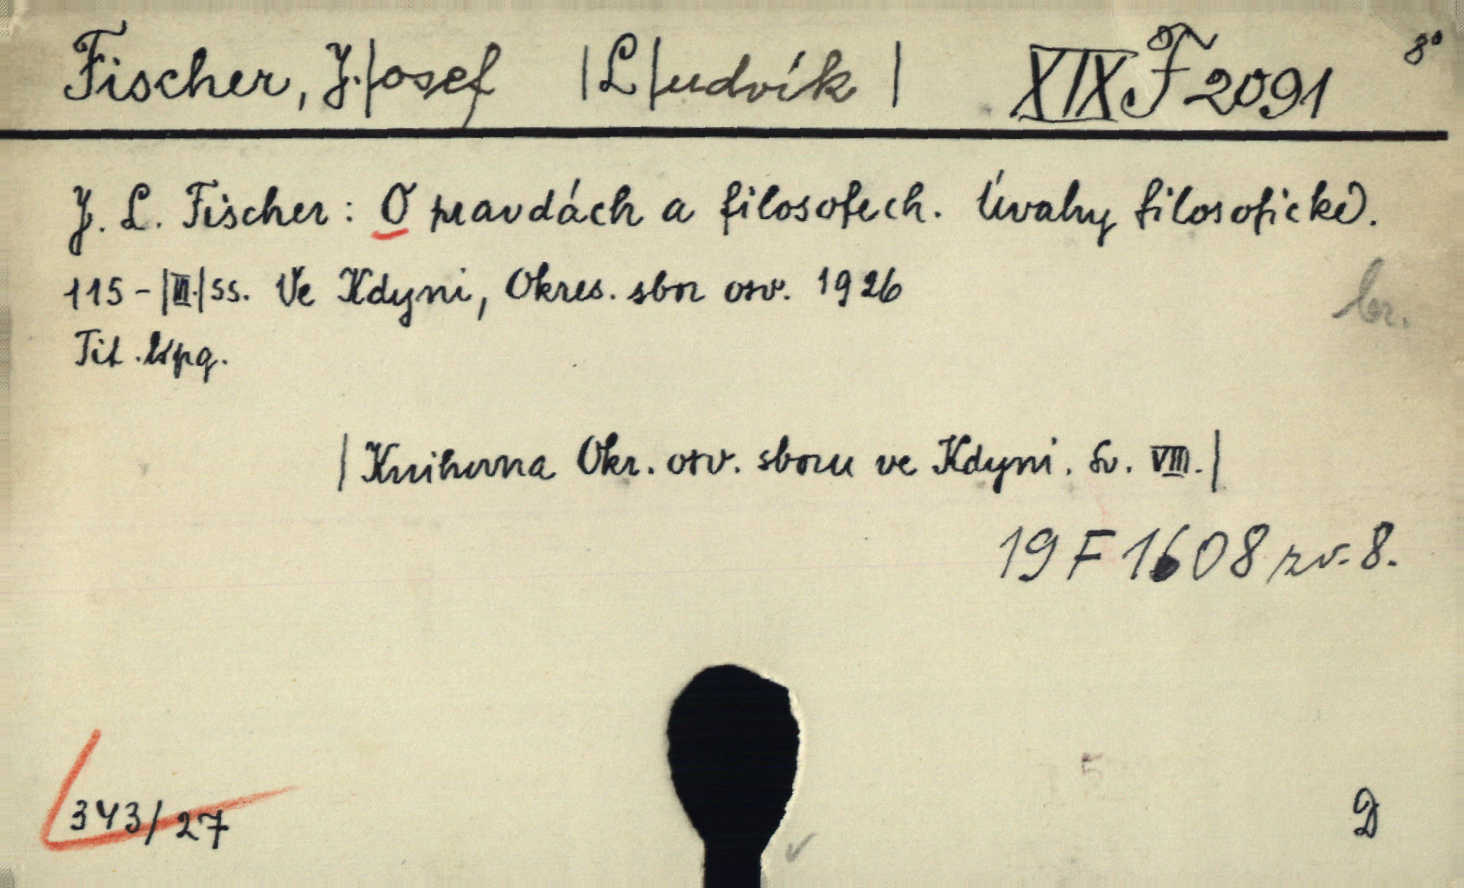 Fischer, J.|osef |L|udvík | XIX F 2091 8°
J. L. Fischer: O pravdách a filosofech. Úvahy filosofické).
115-|III.|ss. Ve Kdyni, Okres. sbor osv. 1926
br.
Tit. kpg.
|Knihovna Okr. osv. sboru ve Kdyni. Sv. VIII.|
19 F 1608 zv. 8.
5
343/27
D